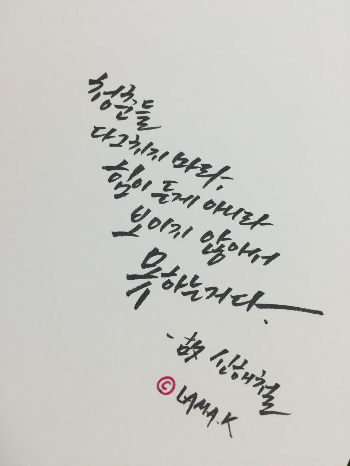 청춘들
다그치지 마라,
힘이 든게 아니라
보이지 않아서
못하는거다.
- 故 신해철
© LAMA.K